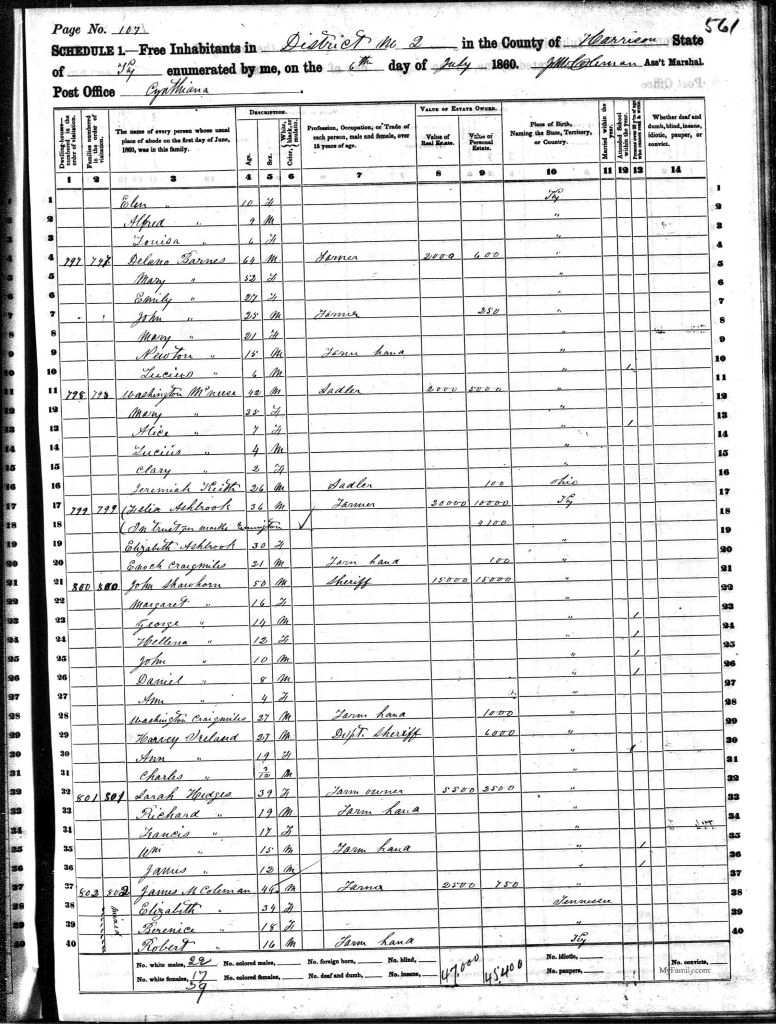 Page No. 107
561
SCHEDULE 1.—Free Inhabitants in District No 2 in the County of Harrison State
of Ky enumerated by me, on the 6th day of July 1860. J M Coleman Ass't Marshal.
Post Office Cynthiana
Dwelling-houses—numbered in the order of visitation.
Families numbered in the order of visitation.
The name of every person whose usual place of abode on the first day of June, 1860, was in this family.
DESCRIPTION.
Age.
Sex.
Color, { White, black, or mulatto.
Profession, Occupation, or Trade of each person, male and female, over 15 years of age.
VALUE OF ESTATE OWNED.
Value of Real Estate.
Value of Personal Estate.
Place of Birth, Naming the State, Territory, or Country.
Married within the year.
Attended School within the year.
Whether deaf and dumb, blind, insane, idiotic, pauper, or convict.
1 2 3 4 5 6 7 8 9 10 11 12 13 14
1 Elen " 10 F Ky 1
2 Alfred " 9 M " 2
3 Louisa " 6 F " 3
4 797 797 Delano Barnes 64 M Farmer 2000 600 " 4
5 Mary " 52 F " 5
6 Emily " 27 F " 6
7 John " 25 M Farmer 250 " 7
8 Mary " 21 F " 8
9 Newton " 18 M Farm hand " 9
10 Lucius " 6 M " 1 10
11 798 798 Washington McNeese 42 M Sadler 2000 5000 " 11
12 Mary " 28 F " 12
13 Alice " 7 F " 1 13
14 Lucius " 4 M " 14
15 Clary " 2 F " 15
16 Jeremiah Keith 26 M Sadler 100 Ohio 16
17 799 799 Ashbrook 36 M Farmer 20000 10000 Ky 17
18 (In trust per 4100 18
19 Elizabeth Ashbrook 30 F " 19
20 Enoch Craigmiles 21 M Farm hand 100 " 20
21 800 800 John Shawhorn 50 M Sheriff 15000 15000 " 21
22 Margaret " 16 F " 22
23 George " 14 M " 1 23
24 Hellena " 12 F " 1 24
25 John " 10 M " 1 25
26 Daniel " 8 M " 1 26
27 Ann " 4 F " 27
28 Washington Craigmiles 27 M Farm hand 1000 " 28
29 Harvey Ireland 27 M Dept. Sheriff 6000 " 29
30 Ann " 19 F " 1 30
31 Charles " M " 31
32 801 801 Sarah Hedges 39 F Farm owner 5500 2500 " 32
33 Richard " 19 M Farm hand " 33
34 Francis " 17 F " 34
35 Wm " 15 M Farm hand " 1 35
36 James " 12 M " 1 36
37 802 802 James M Coleman 44 M Farmer 2500 750 " 37
38 Elizabeth " 34 F Tennessee 38
39 Berenice " 18 F " 39
40 Robert " 16 M Farm hand Ky 40
No. white males, 22 No. colored males, No. foreign born, No. blind, 47,000 45,400 No. idiotic, No. convicts,
No. white females, 17 No. colored females, No. deaf and dumb, No. insane, No. paupers,
39
MyFamily.com